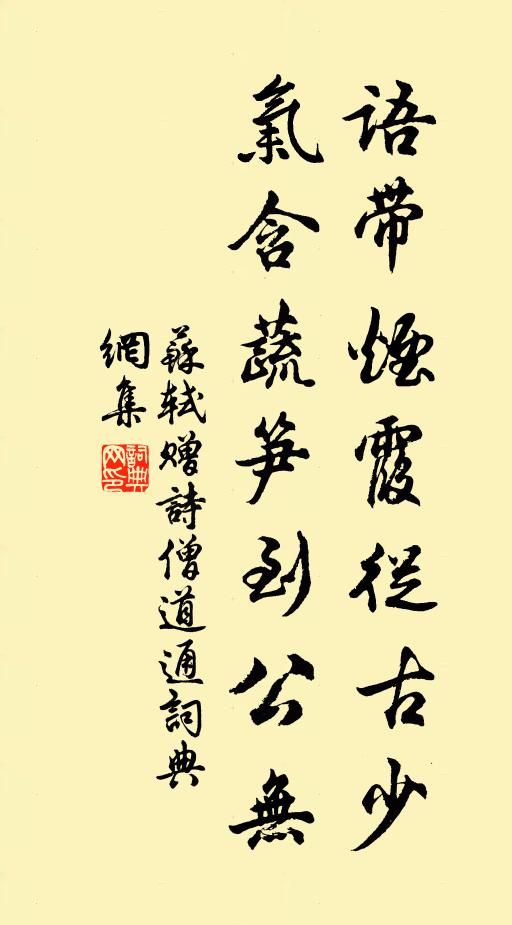 語帶煙霞從古少
氣含蔬笋到公無
蘇軾贈詩僧道通詞典
網集
詞典
网印